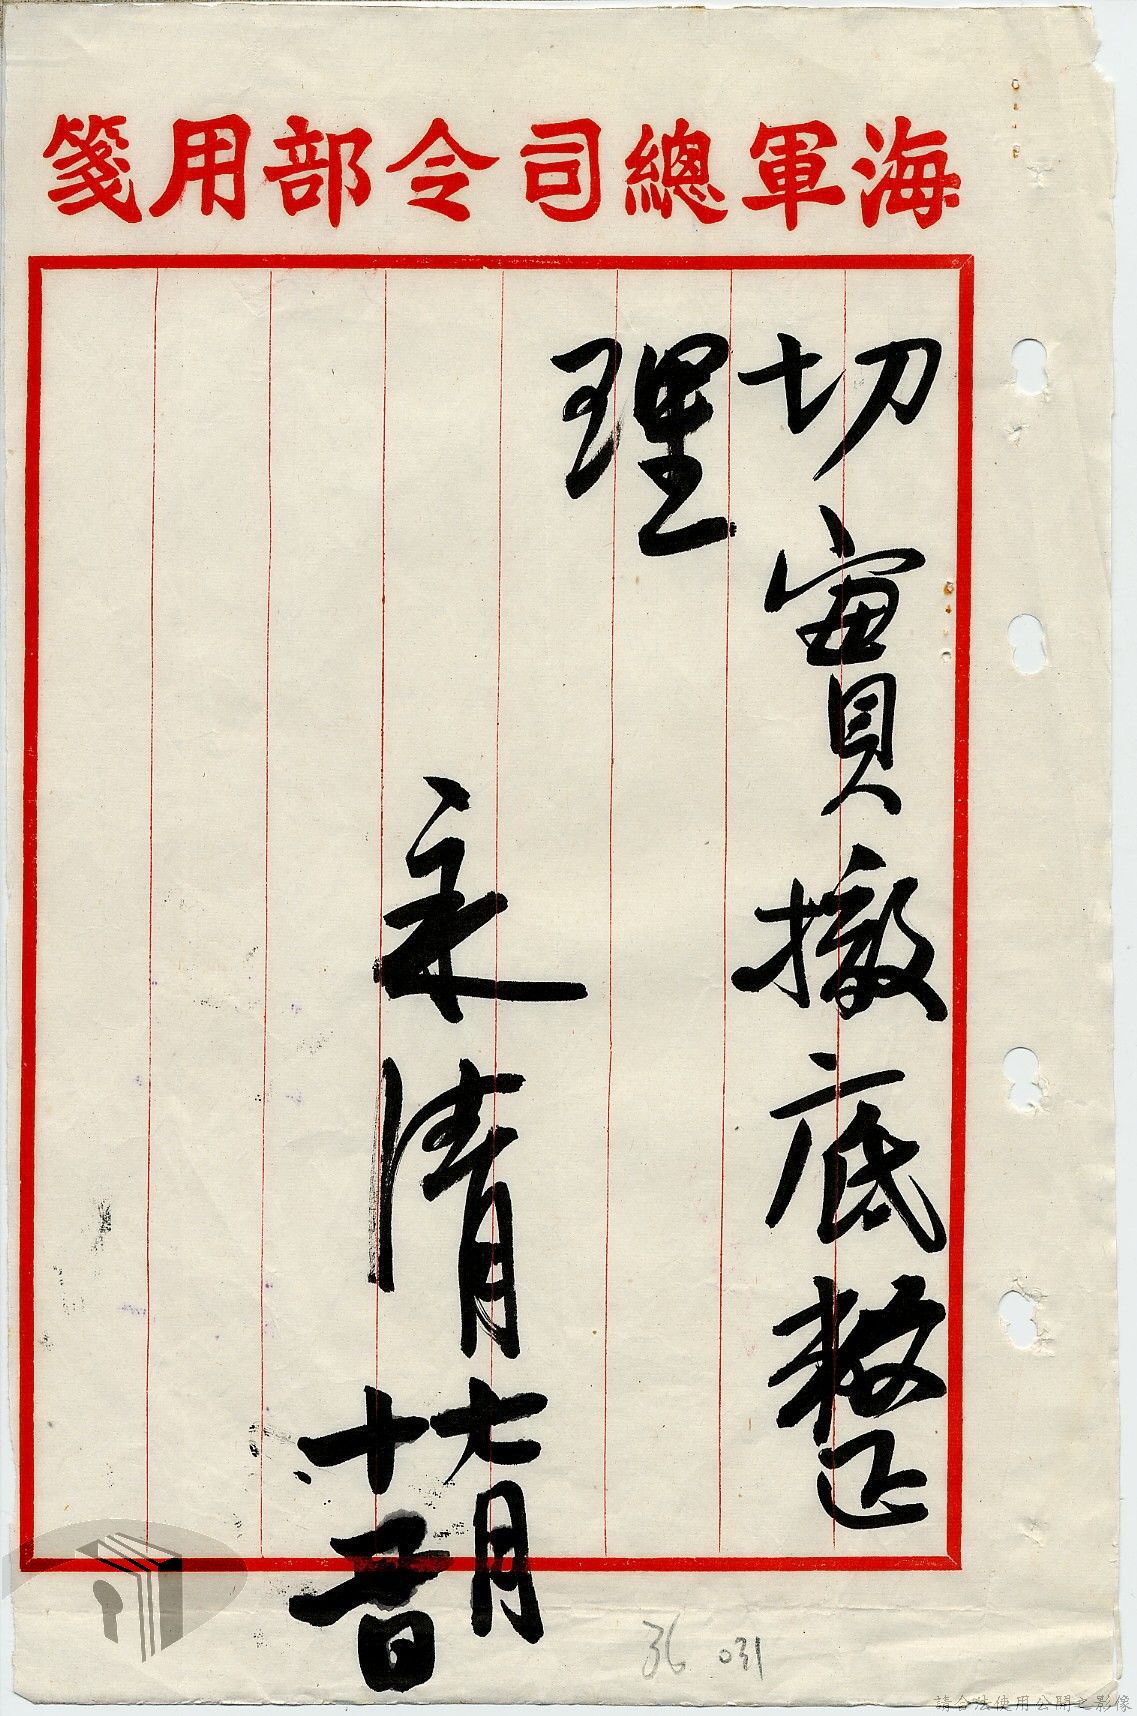 海軍總司令部用箋
切實撤底整
理
永清
七月
十五日
36 031
請合法使用公開之影像